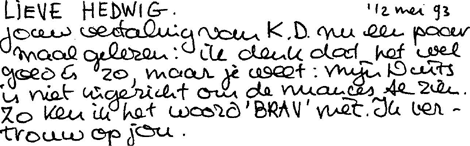 LIEVE HEDWIG. 1/2 mei 93
jouw vertaling van K.D. nu een paar
maal gelezen: ik denk dat het wel
goed is zo, maar je weet: mijn Duits
is niet ingericht om de nuances te zien.
Zo ken ik het woord 'BRAV' niet. Ik ver-
trouw op jou.